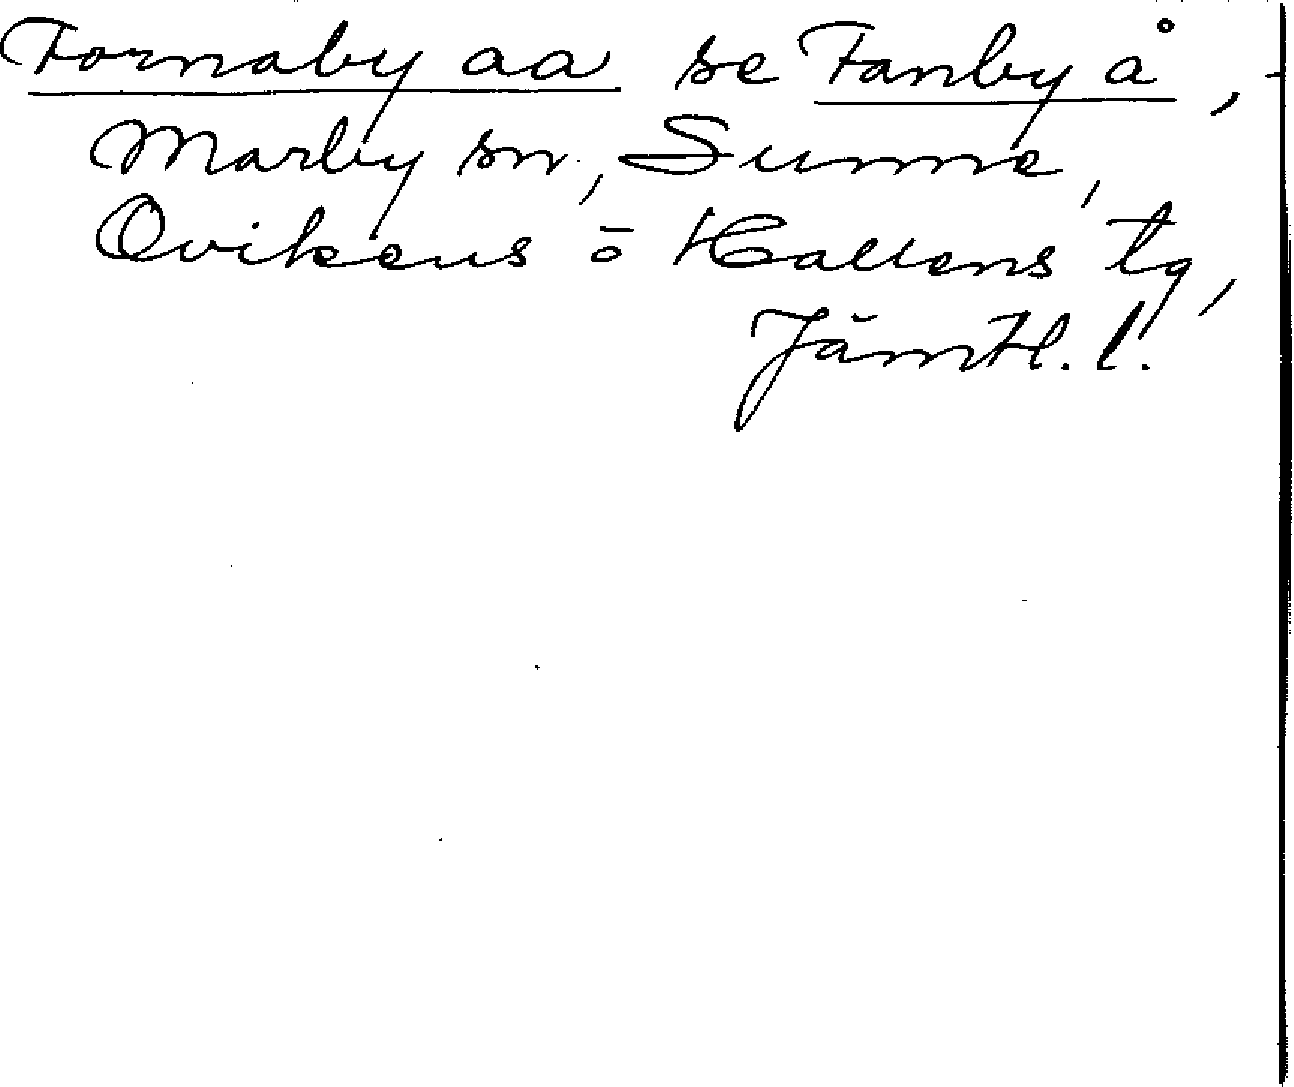 Fornaby aa se Fanby å,
Marby sn., Sunne,
Ovikens o Hallens tg,
Jämtl. l.